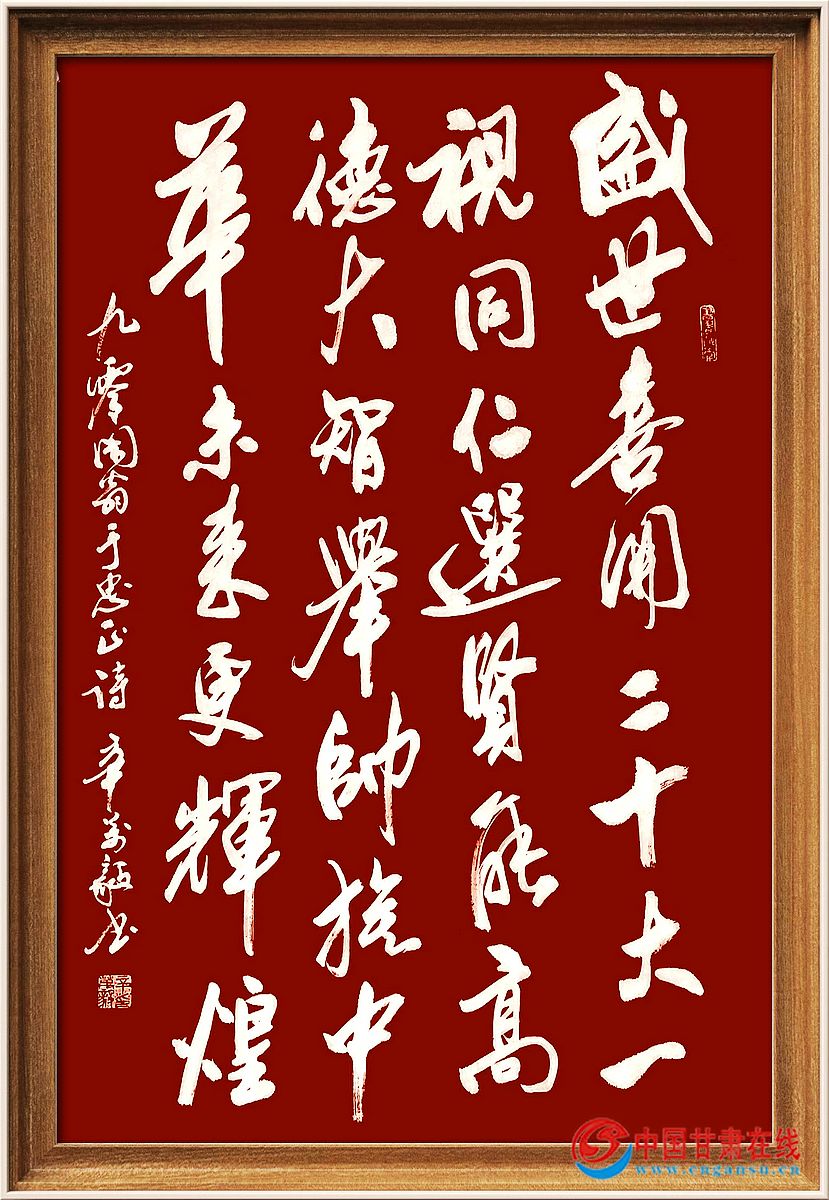 盛世喜开二十大一
視同仁選賢能高
德大智舉帥旗中
華未来更輝煌
九零陶翁于忠正诗 辛万毅书
中国甘肃在线
www.cngansu.cn